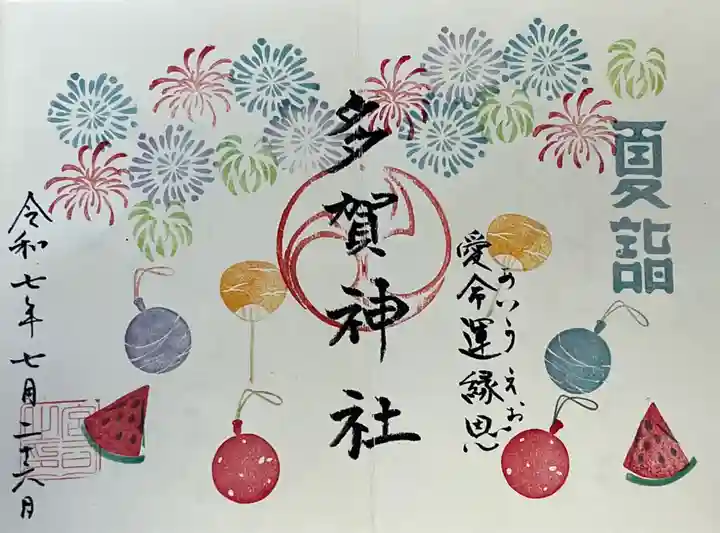 夏詣
愛命運縁恩
あいうえお
多賀神社
令和七年七月二十六日